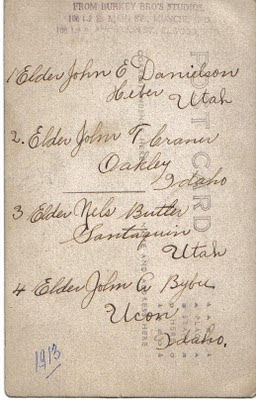 FROM BURKEY BRO'S STUDIOS,
POST CARD
1 Elder John E Danielson
Heber Utah
2. Elder John T Craner
Oakley
Idaho
3 Elder Nels Butler
Santaquin
Utah
4 Elder John A Bybee
Ucon
Idaho.
1913